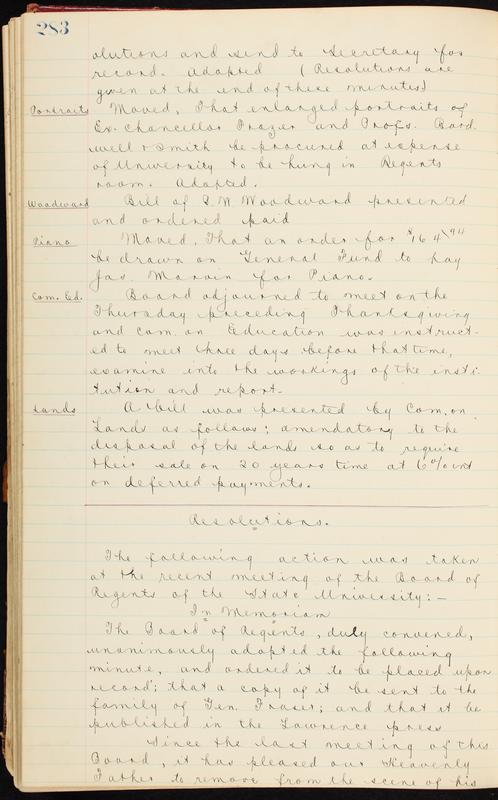 283
olutions and send to Secretary for
record. Adopted (Resolutions are
given at the end of these minutes)
Portraits Moved, That enlarged portraits of
Ex. Chancellor Frazer and Profs. Bard
well & Smith be procured at expense
of University to be hung in Regents
room. Adopted.
Woodward Bill of B. W. Woodward presented
and ordered paid
Piano Moved, That an order for $164 94
be drawn on General Fund to pay
Jas Marvin for Piano.
Com. Ed. Board adjourned to meet on the
Thursday preceding Thanksgiving
and Com. on Education was instruct-
ed to meet three days before that time,
examine into the workings of the insti-
tution and report.
Lands A bill was presented by Com. on
Lands as follows; amendatory to the
disposal of the lands so as to require
their sale on 20 years time at 6% int
on deferred payments.
Resolutions.
The following action was taken
at the recent meeting of the Board of
Regents of the State University:—
In Memoriam
The Board of Regents, duly convened,
unanimously adopted the following
minute, and ordered it to be placed upon
record; that a copy of it be sent to the
family of Gen. Fraser; and that it be
published in the Lawrence press
Since the last meeting of this
Board, it has pleased our Heavenly
Father to remove from the scene of his